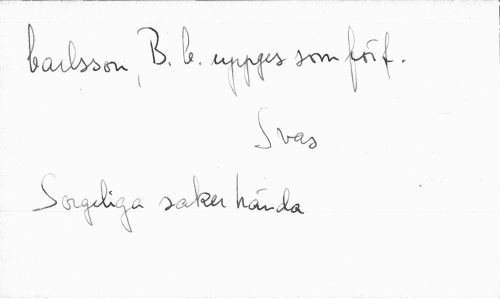 Carlsson, B. C. uppges som förf.
Svas
Sorgeliga saker hända